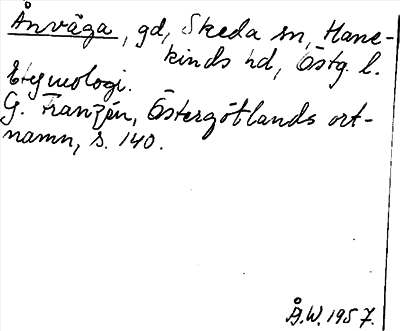 Ånväga, gd, Skeda sn, Hane-
kinds hd, Östg. l.
Etymologi.
G. Franzén, Östergötlands ort-
namn, s. 140.
Å.W. 1957.